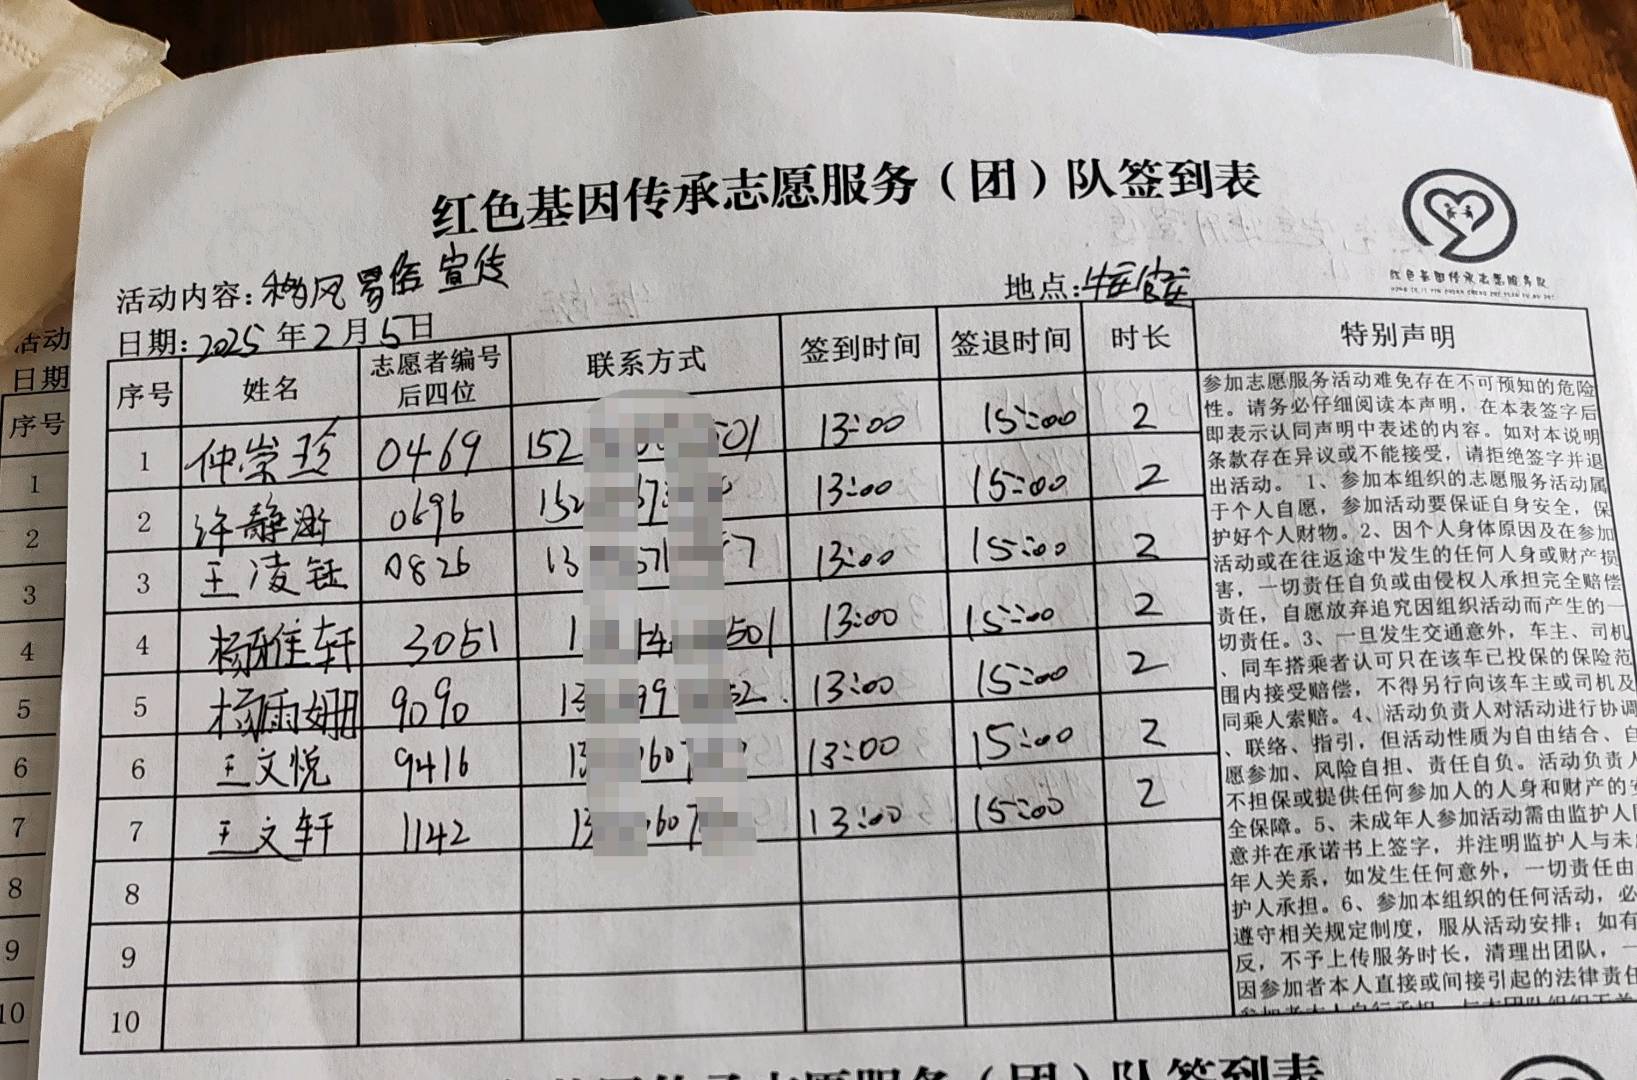 红色基因传承志愿服务（团）队签到表
红色基因传承志愿服务队
活动内容：移风易俗宣传
地点：
日期：2025年2月5日
序号 姓名 志愿者编号后四位 联系方式 签到时间 签退时间 时长 特别声明
1 仲崇玲 0469 152 501 13:00 15:00 2
2 许静 0696 152 13:00 15:00 2
3 王凌钰 0826 13 571 7 13:00 15:00 2
4 杨雅轩 3051 1 14 501 13:00 15:00 2
5 杨雨姗 9090 13 99 52 13:00 15:00 2
6 王文悦 9416 13 607 13:00 15:00 2
7 王文轩 1142 13 607 13:00 15:00 2
8
9
10
参加志愿服务活动难免存在不可预知的危险
性。请务必仔细阅读本声明，在本表签字后
即表示认同声明中表述的内容。如对本说明
条款存在异议或不能接受，请拒绝签字并退
出活动。1、参加本组织的志愿服务活动属
于个人自愿，参加活动要保证自身安全，保
护好个人财物。2、因个人身体原因及在参加
活动或在往返途中发生的任何人身或财产损
害，一切责任自负或由侵权人承担完全赔偿
责任，自愿放弃追究因组织活动而产生的一
切责任。3、一旦发生交通意外，车主、司机
、同车搭乘者认可只在该车已投保的保险范
围内接受赔偿，不得另行向该车主或司机及
同乘人索赔。4、活动负责人对活动进行协调
、联络、指引，但活动性质为自由结合、自
愿参加、风险自担、责任自负。活动负责人
不担保或提供任何参加人的人身和财产的安
全保障。5、未成年人参加活动需由监护人同
意并在承诺书上签字，并注明监护人与未成
年人关系，如发生任何意外，一切责任由
护人承担。6、参加本组织的任何活动，必
遵守相关规定制度，服从活动安排；如有
反，不予上传服务时长，清理出团队，一
因参加者本人直接或间接引起的法律责任
活动
日期
序号
1
2
3
4
5
6
7
8
9
10
基因传承志愿服务（团）队签到表